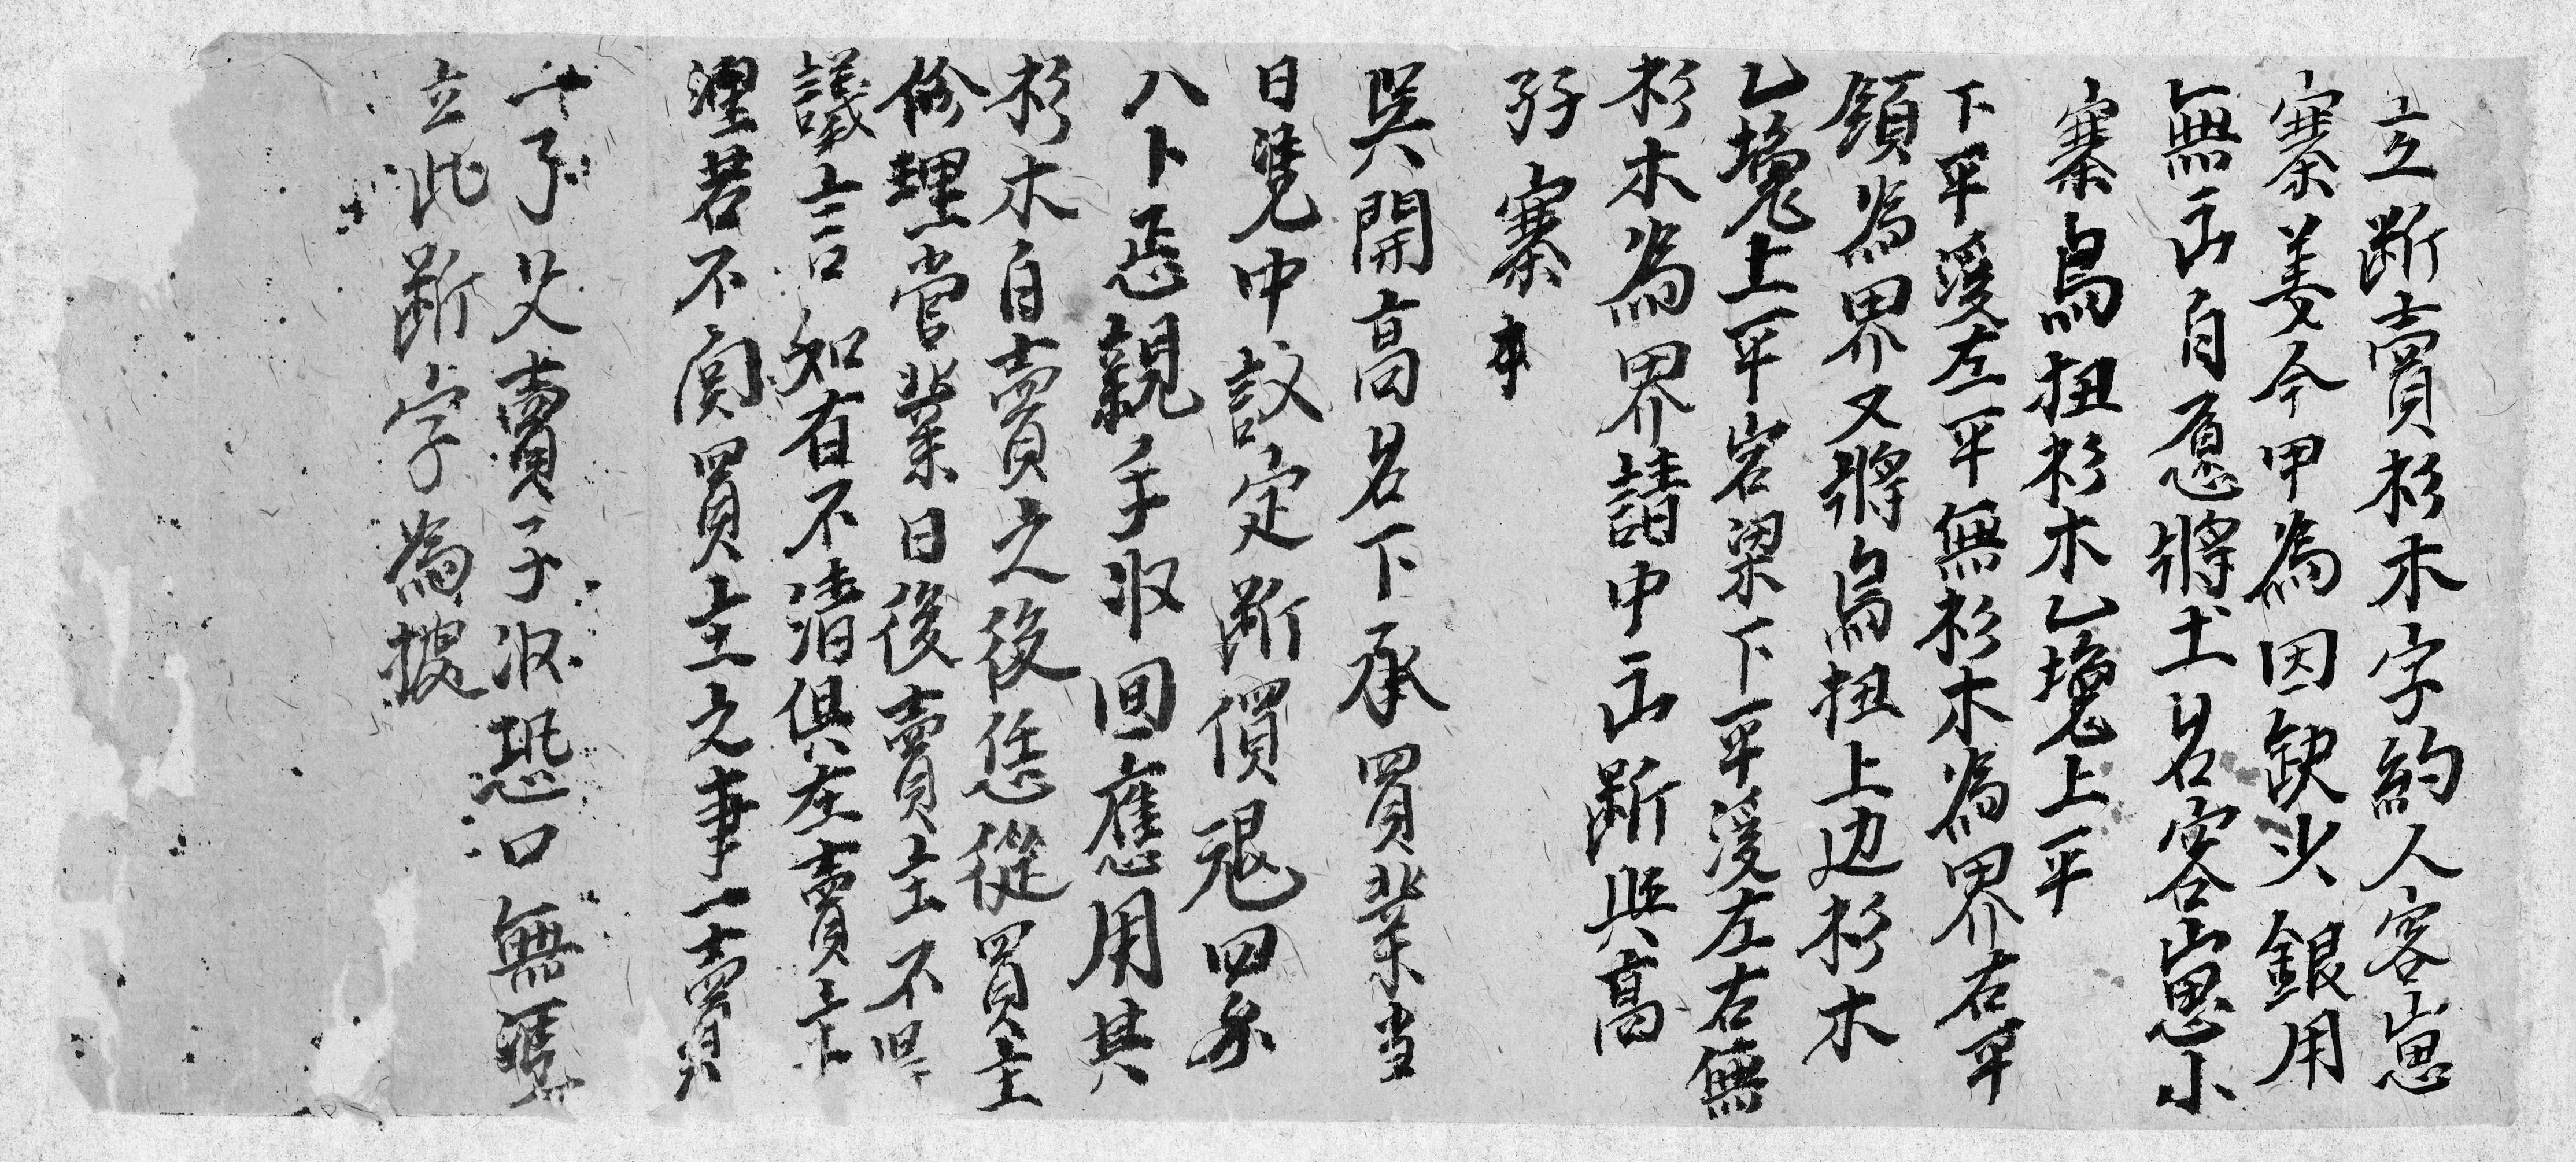 立断賣杉木字約人客崽
寨姜今甲為因缺少銀用
無出自愿將土名客崽小
寨烏扭杉木乙塊上平
下平溪左平無杉木為界右平
領為界又將烏扭上边杉木
乙塊上平岩梁下平溪左右無
杉木為界請中出断與高
孖寨
吳開高名下承買業当
日凴中議定断價銀四
八卜正親手収回應用其
杉木自賣之後恁從買主
修理管業日後賣主不得
議言如有不清俱在賣主
理若不関買主之事一賣
一了父賣子収恐口無凴
立此断字為據